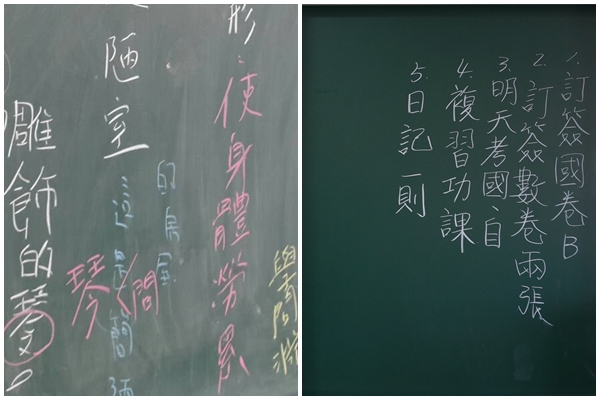 學問淵
形、使身體勞累
陋室
這是簡陋
的房屋
琴
雕飾的琴。
1. 訂簽國卷B
2. 訂簽數卷兩張
3. 明天考國、自
4. 複習功課
5. 日記一則